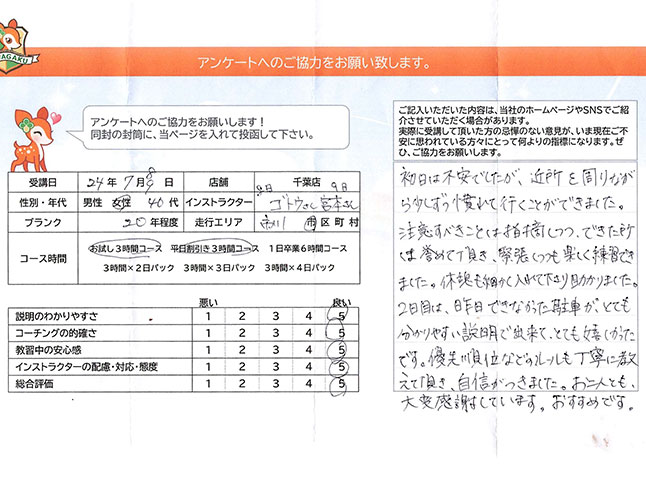 NAGAKU
アンケートへのご協力をお願い致します。
アンケートへのご協力をお願いします！
同封の封筒に、当ページを入れて投函して下さい。
ご記入いただいた内容は、当社のホームページやSNSでご紹介
させていただく場合があります。
実際に受講して頂いた方の忌憚のない意見が、いま現在ご不
安に思われている方々にとって何よりの指標になります。ぜ
ひ、ご協力をお願いします。
受講日 24年 7月 8 9 日 店舗 千葉店
性別・年代 男性 女性 40 代 インストラクター 8日 ゴトウさん 9日 宮本さん
ブランク 20年程度 走行エリア 市川 市区町村
コース時間 お試し3時間コース 平日割引き3時間コース 1日卒業6時間コース
3時間×2日パック 3時間×3日パック 3時間×4日パック
悪い 良い
説明のわかりやすさ 1 2 3 4 5
コーチングの的確さ 1 2 3 4 5
教習中の安心感 1 2 3 4 5
インストラクターの配慮・対応・態度 1 2 3 4 5
総合評価 1 2 3 4 5
初日は不安でしたが、近所を周りなが
ら少しずつ慣れて行くことができました。
注意すべきことは指摘しつつ、できた所
は誉めて頂き、緊張しつつも楽しく練習でき
ました。休憩も細かく入れて下さり助かりました。
2日目は、昨日できなかった駐車が、とても
分かりやすい説明で出来て、とても嬉しかった
です。優先順位などのルールも丁寧に教
えて頂き、自信がつきました。お二人とも、
大変感謝しています。おすすめです。